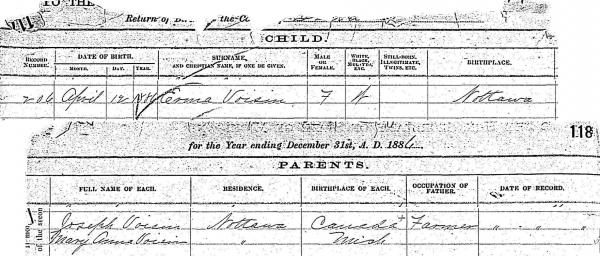 TO THE
Return of
the Co
CHILD.
RECORD NUMBER.
DATE OF BIRTH.
MONTH. DAY. YEAR.
SURNAME,
AND CHRISTIAN NAME, IF ONE BE GIVEN.
MALE OR FEMALE.
WHITE, BLACK, MULATTO, ETC.
STILL-BORN, ILLEGITIMATE, TWINS, ETC.
BIRTHPLACE.
206 April 12 Erma Voisin F W Nottawa
118
for the Year ending December 31st, A. D. 1886
PARENTS.
FULL NAME OF EACH. RESIDENCE. BIRTHPLACE OF EACH. OCCUPATION OF FATHER. DATE OF RECORD.
Joseph Voisin Nottawa Canada + Farmer " " "
Mary Anna Voisin " Mich